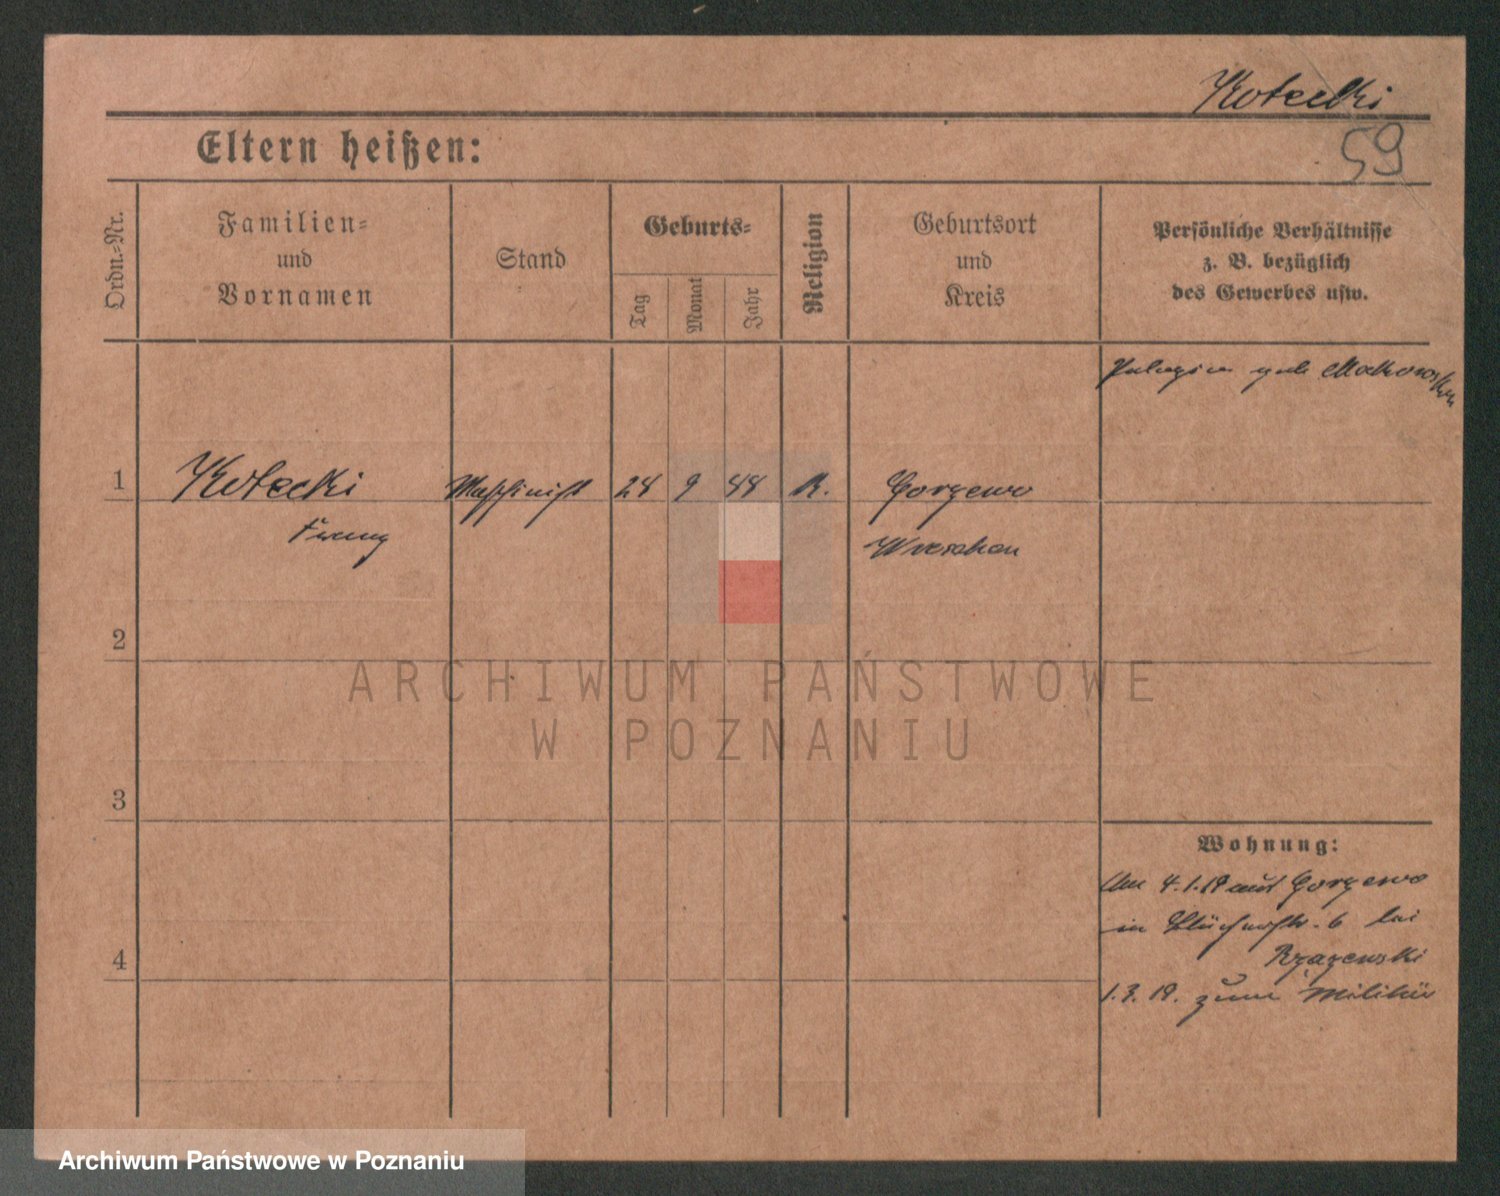 Kotecki
59
Eltern heißen:
Ordn.-Nr.
Familien-
und
Vornamen
Stand
Geburts-
Tag
Monat
Jahr
Religion
Geburtsort
und
Kreis
Persönliche Verhältnisse
z. B. bezüglich
des Gewerbes usw.
Pelagia geb Makowska
1 Kotecki Maschinist 24 9 44 K. Gorzewo
Franz Wreschen
2
3
Wohnung:
Am 4.1.19 aus Gorzewo
in Blücherstr. 6 bei
4
1.3.19. zum Militär
ARCHIWUM PAŃSTWOWE
W POZNANIU
Archiwum Państwowe w Poznaniu